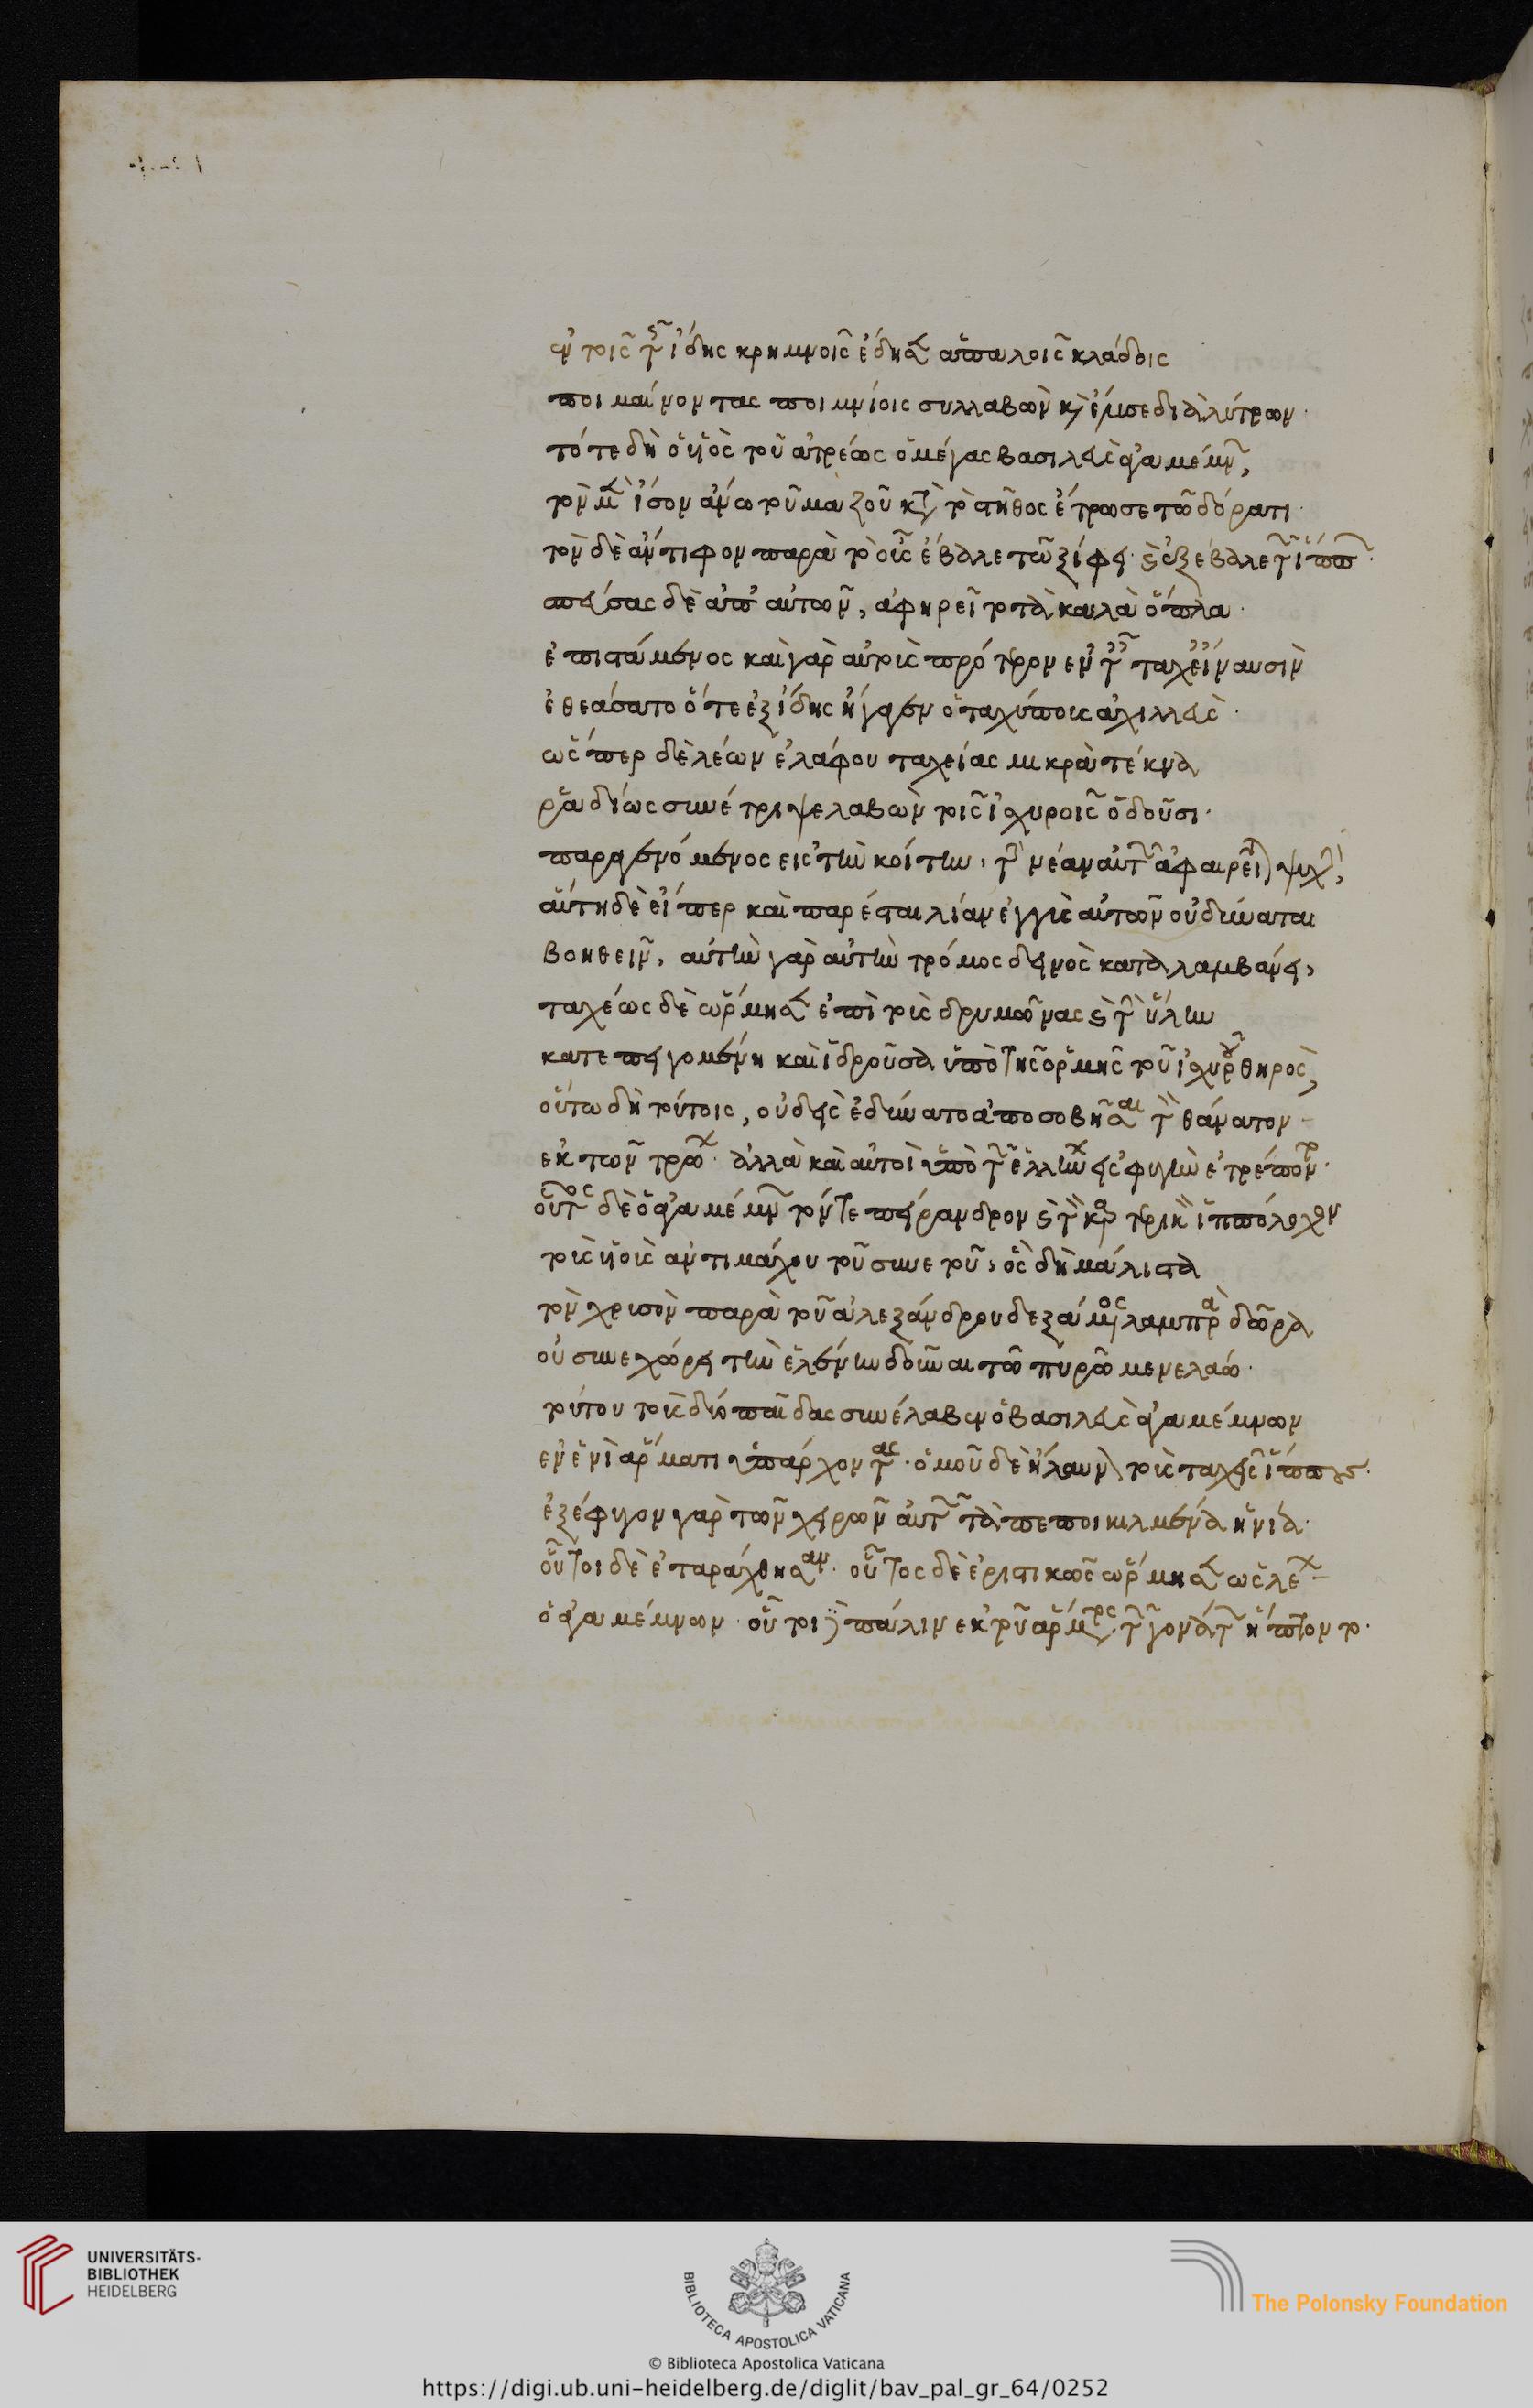 ἐν τοῖς τῆς ἴδης κρημνοῖς ἔδησεν ἁπαλοῖς κλάδοις
ποιμαίνοντας ποιμνίοις συλλαβὼν καὶ ἔλυσε διὰ λύτρων·
τότε δὴ ὁ υἱὸς τοῦ ἀτρέως ὁ μέγας βασιλεὺς ἀγαμέμνων,
τὸν μὲν ἶσον ἄνω τοῦ μαζοῦ κατὰ τὸ στῆθος ἔτρωσε τῶ δόρατι·
τὸν δὲ ἄντιφον παρὰ τὸ οὖς ἔβαλε τῶ ξίφει· καὶ ἐξέβαλε τῶν ἵππων·
σπεύσας δὲ ἀπ' αὐτῶν, ἀφηρεῖτο τὰ καλὰ ὅπλα·
ἐπιστάμενος καὶ γὰρ αὐτοὺς πρότερον ἐν ταῖς ταχείαις ναυσὶν
ἐθεάσατο ὅτε ἐξ ἴδης ἤγαγεν ὁ ταχύπους ἀχιλλεὺς·
ὥσπερ δὲ λέων ἐλάφου ταχείας μικρὰ τέκνα
ῥαδίως συνέτριψε λαβὼν τοῖς ἰσχυροῖς ὀδοῦσι·
παραγενόμενος εἰς τὴν κοίτην, τὴν νέαν αὐτῶν ἀφαιρεῖται ψυχήν,
αὕτη δὲ εἴπερ καὶ πάρεσται λίαν ἐγγὺς αὐτῶν οὐ δύναται
βοηθεῖν, αὐτὴν γὰρ αὐτὴν τρόμος δεινὸς καταλαμβάνει,
ταχέως δὲ ὥρμησεν ἐπὶ τοὺς δρυμῶνας καὶ τὴν ὕλην
κατεπειγομένη καὶ ἱδροῦσα ὑπὸ τῆς ὁρμῆς τοῦ ἰσχυροῦ θηρὸς,
οὕτω δὴ τούτοις, οὐδεὶς ἐδύνατο ἀποσοβῆσαι τὸν θάνατον
ἐκ τῶν τρώων· ἀλλὰ καὶ αὐτοὶ ὑπὸ τῶν ἑλλήνων εἰς φυγὴν ἐτρέποντο·
οὗτος δὲ ὁ ἀγαμέμνων τόν τε πείρανδρον καὶ τὸν καρτερικὸν ἱππόλοχον
τοὺς υἱοὺς ἀντιμάχου τοῦ συνετοῦ, ὃς δὴ μάλιστα
τὸν χρυσὸν παρὰ τοῦ ἀλεξάνδρου δεξάμενος λαμπρὰ δῶρα
οὐ συνεχώρει τὴν ἑλένην δοῦναι τῶ πυρῶ μενελάω·
τούτου τοὺς δύο παῖδας συνέλαβεν ὁ βασιλεὺς ἀγαμέμνων
ἐν ἑνὶ ἅρματι ὑπάρχοντας· ὁμοῦ δὲ ἤλαυνον τοὺς ταχεῖς ἵππους·
ἐξέφυγον γὰρ τῶν χειρῶν αὐτῶν τὰ πεποικιλμένα ἡνία·
οὗτοι δὲ ἐταράχθησαν· οὗτος δὲ ἐριστικῶς ὥρμησεν ὡς λέων
ὁ ἀγαμέμνων· οὗτοι δὲ πάλιν ἐκ τοῦ ἅρματος τῶν γονάτων ἥπτοντο·
UNIVERSITÄTS-
BIBLIOTHEK
HEIDELBERG
BIBLIOTECA APOSTOLICA VATICANA
The Polonsky Foundation
© Biblioteca Apostolica Vaticana
https://digi.ub.uni-heidelberg.de/diglit/bav_pal_gr_64/0252